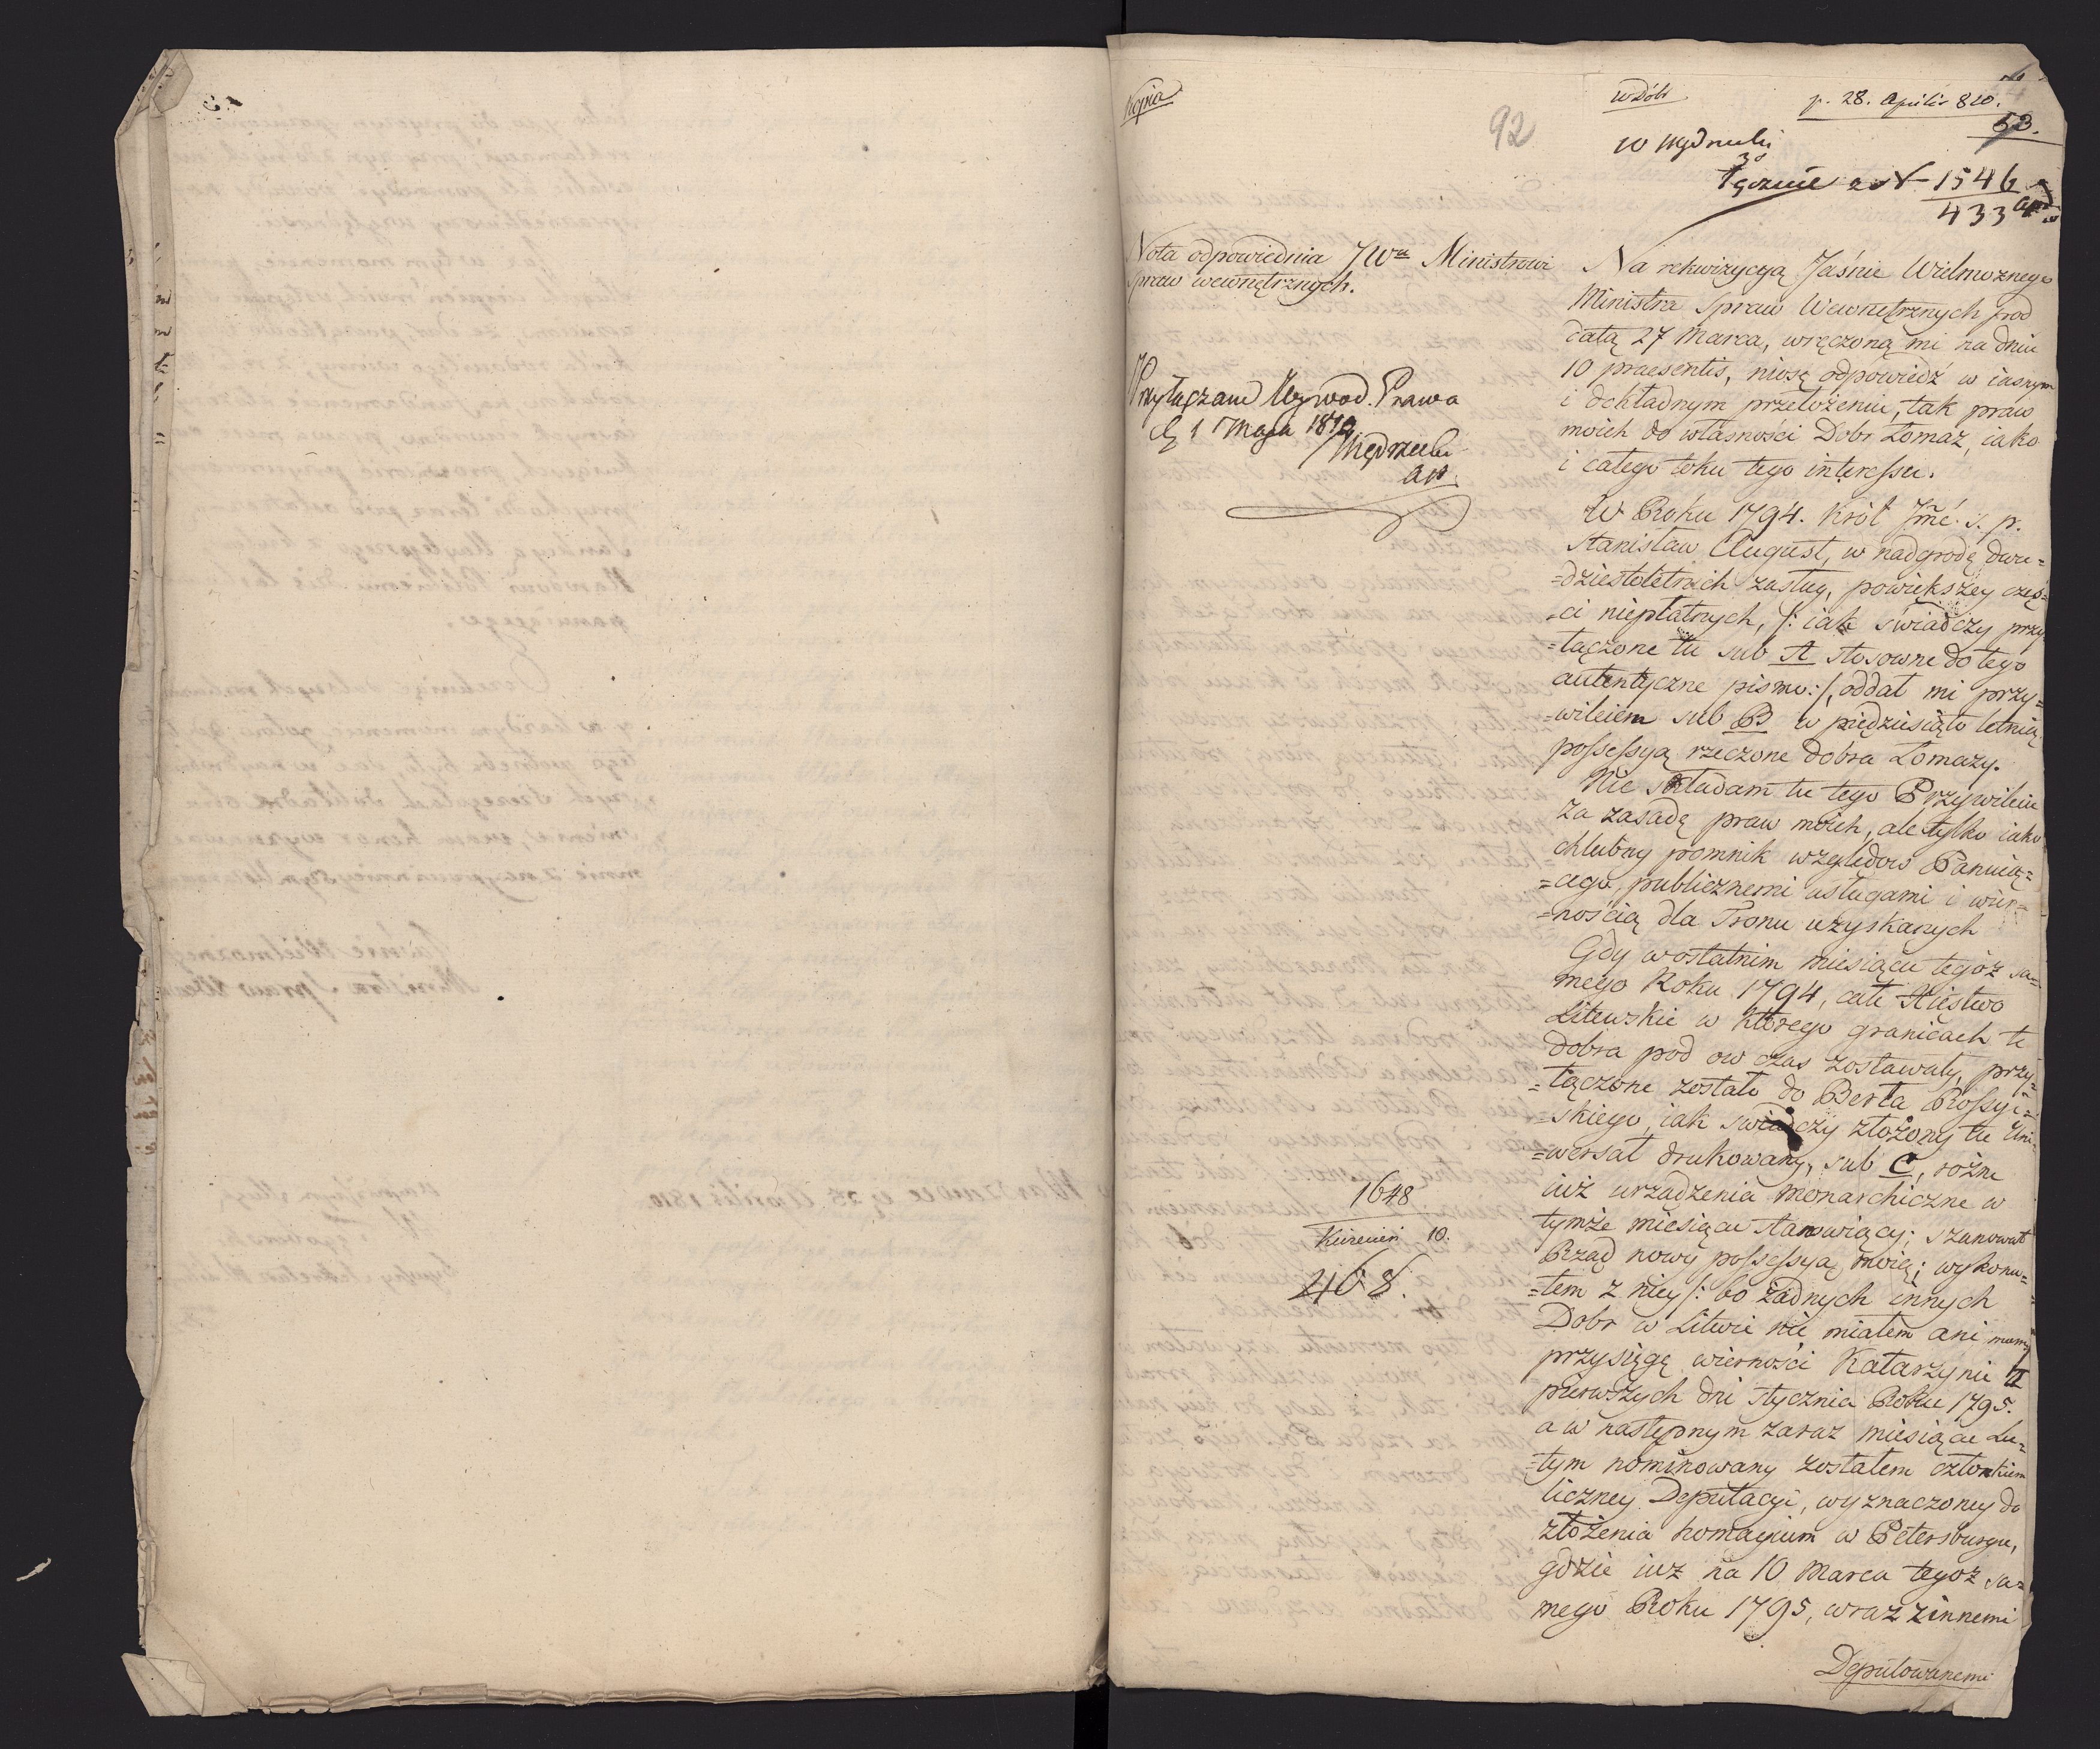 Kopia
92
w Dóbr
p. 28. Aprilis 810.
53.
w Wydziele
Łącznie z N 1546
433
Nota odpowiednia JWu Ministrowi
Spraw wewnętrznych.
Przyłączam Wywod Prawa
d. 1 Maja 1810
Na rekwizycyą Jaśnie Wielmożnego
Ministra Spraw Wewnętrznych pod
datą 27 Marca, wręczoną mi na dniu
10 praesentis, niosę odpowiedź w iasnym
i dokładnym przełożeniu, tak praw
moich do własności Dobr Łomaz, iako
i całego toku tego interessu.
W Roku 1794. Król Jmć. ś. p.
Stanisław August, w nadgrodę dwu=
=dziestoletnich zasług, powiększey częś=
=ci niepłatnych, /: iak świadczy przy
=łączone tu sub A stosowne do tego
autentyczne pismo:/, oddał mi przy=
=wileiem sub B w piędziesiąto letnią
possessyą rzeczone dobra Łomazy.
Nie składam tu tego Przywileiu
za zasadę praw moich, ale tylko iako
chlubny pomnik względow Panuią=
=cego, publicznemi usługami i wier=
=nością dla Tronu uzyskanych
Gdy w ostatnim miesiącu tegoż sa=
mego Roku 1794, całe Xięstwo
Litewskie w którego granicach te
dobra pod ow czas zostawały, przy=
=łączone zostało do Berła Rossyi=
=skiego, iak świadczy złożony tu Uni=
=wersał drukowany, sub C, rożne
iuż urządzenia monarchiczne w
tymże miesiącu stanowiący; szanował
Rząd nowy possessyą moię; wykona=
=łem z niey /: bo żadnych innych
Dobr w Litwie nie miałem ani mam
przysięgę wierności Katarzynie II
pierwszych dni stycznia Roku 1795.
a w następnym zaraz miesiącu Lu=
=tym nominowany zostałem członkiem
liczney Deputacyi, wyznaczoney do
złożenia homagium w Petersburgu,
gdzie iuż na 10 Marca tegoż sa=
mego Roku 1795, wraz z innemi
Deputowanemi
1648
10.
468.